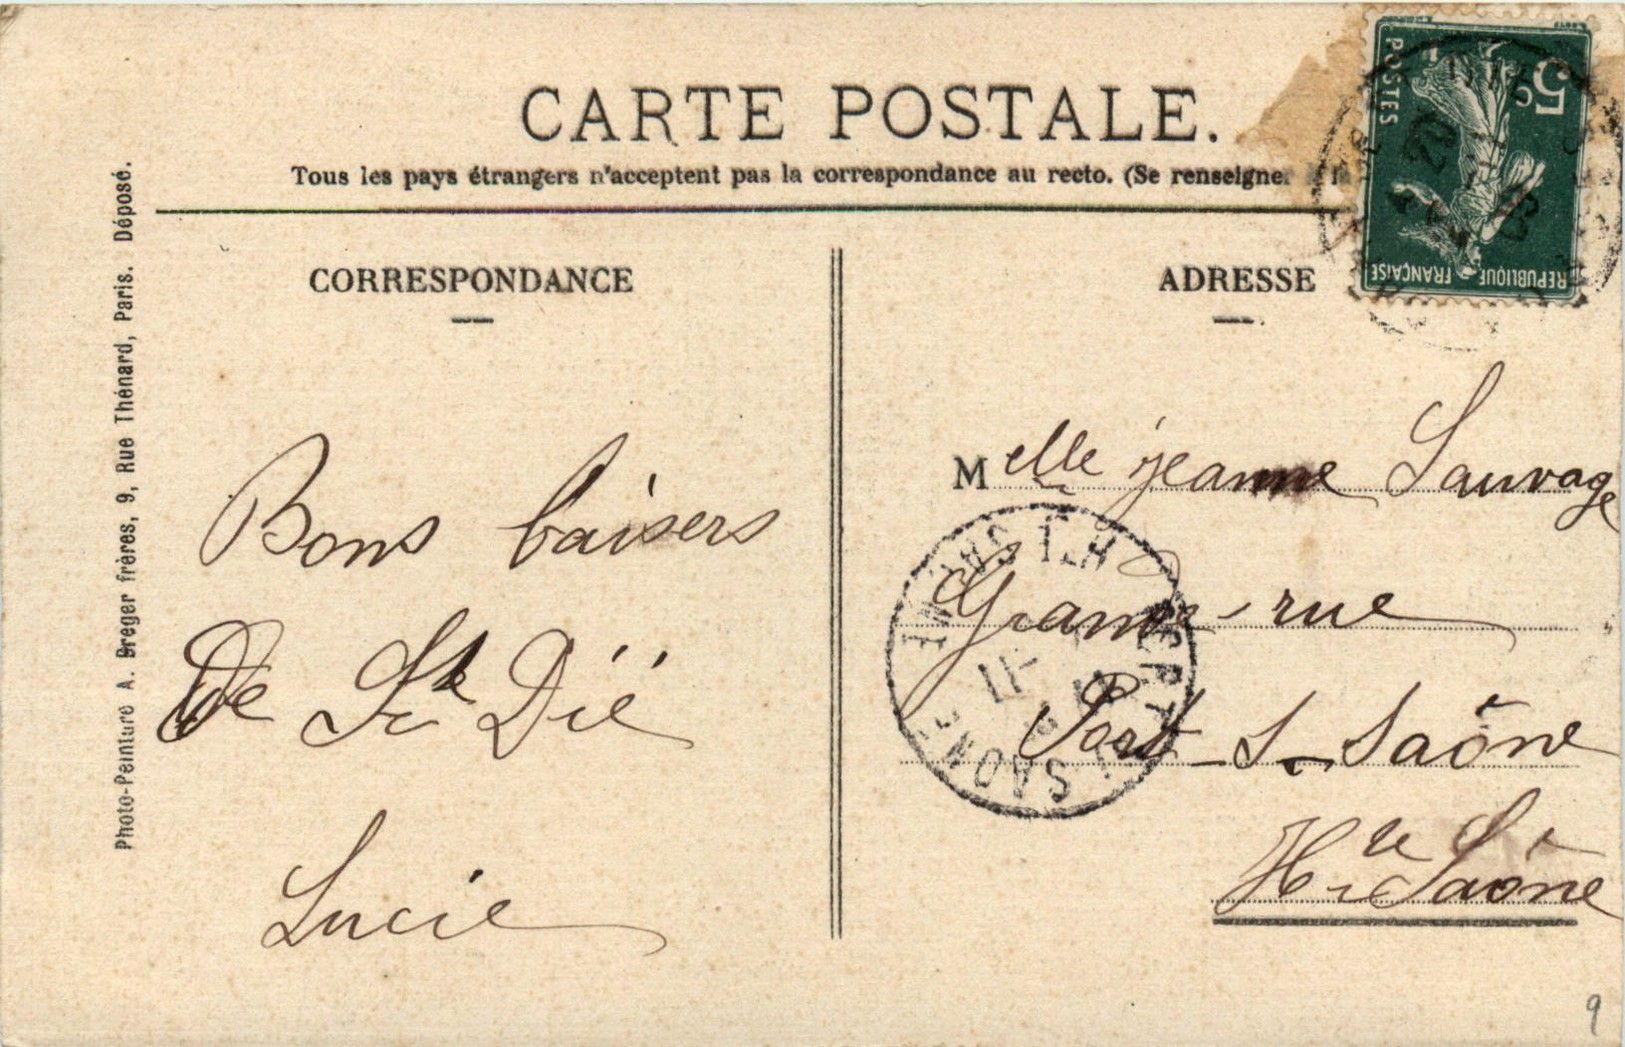 CARTE POSTALE.
Tous les pays étrangers n'acceptent pas la correspondance au recto. (Se renseigne
CORRESPONDANCE
Bons baisers
De St Dié
Lucie
ADRESSE
Melle jeanne Sauvage
Grande rue
Port-s-Saône
Hte Saône
Photo-Peinture A. Breger frères, 9, Rue Thénard, Paris. Déposé.
5
POSTES
REPUBLIQUE FRANÇAISE
PORT S SAONE
HTE SAONE
9